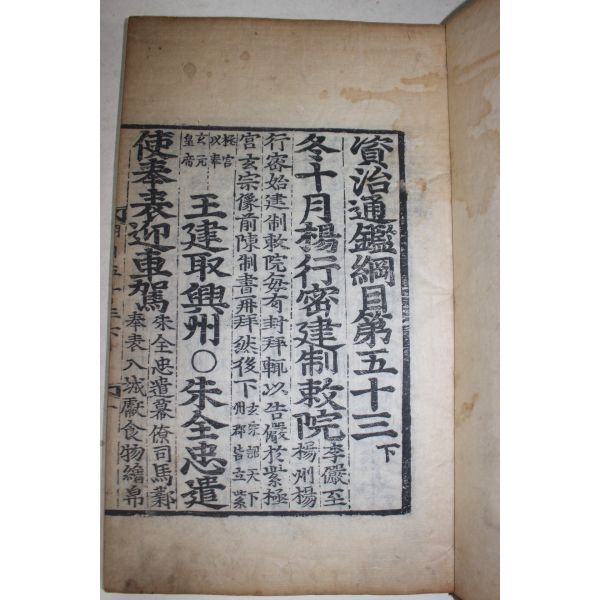 資治通鑑綱目第五十三下
冬十月楊行密建制敕院
李儼至
揚州楊
行密始建制敕院每有封拜輒以告儼於紫極
宮玄宗像前陳制書再拜然後下
玄宗詔天下
州郡皆立紫
極宮
以奉
玄元
皇帝
王建取興州○朱全忠遣
使奉表迎車駕
朱全忠遣幕僚司馬鄴
奉表入城獻食物繒帛